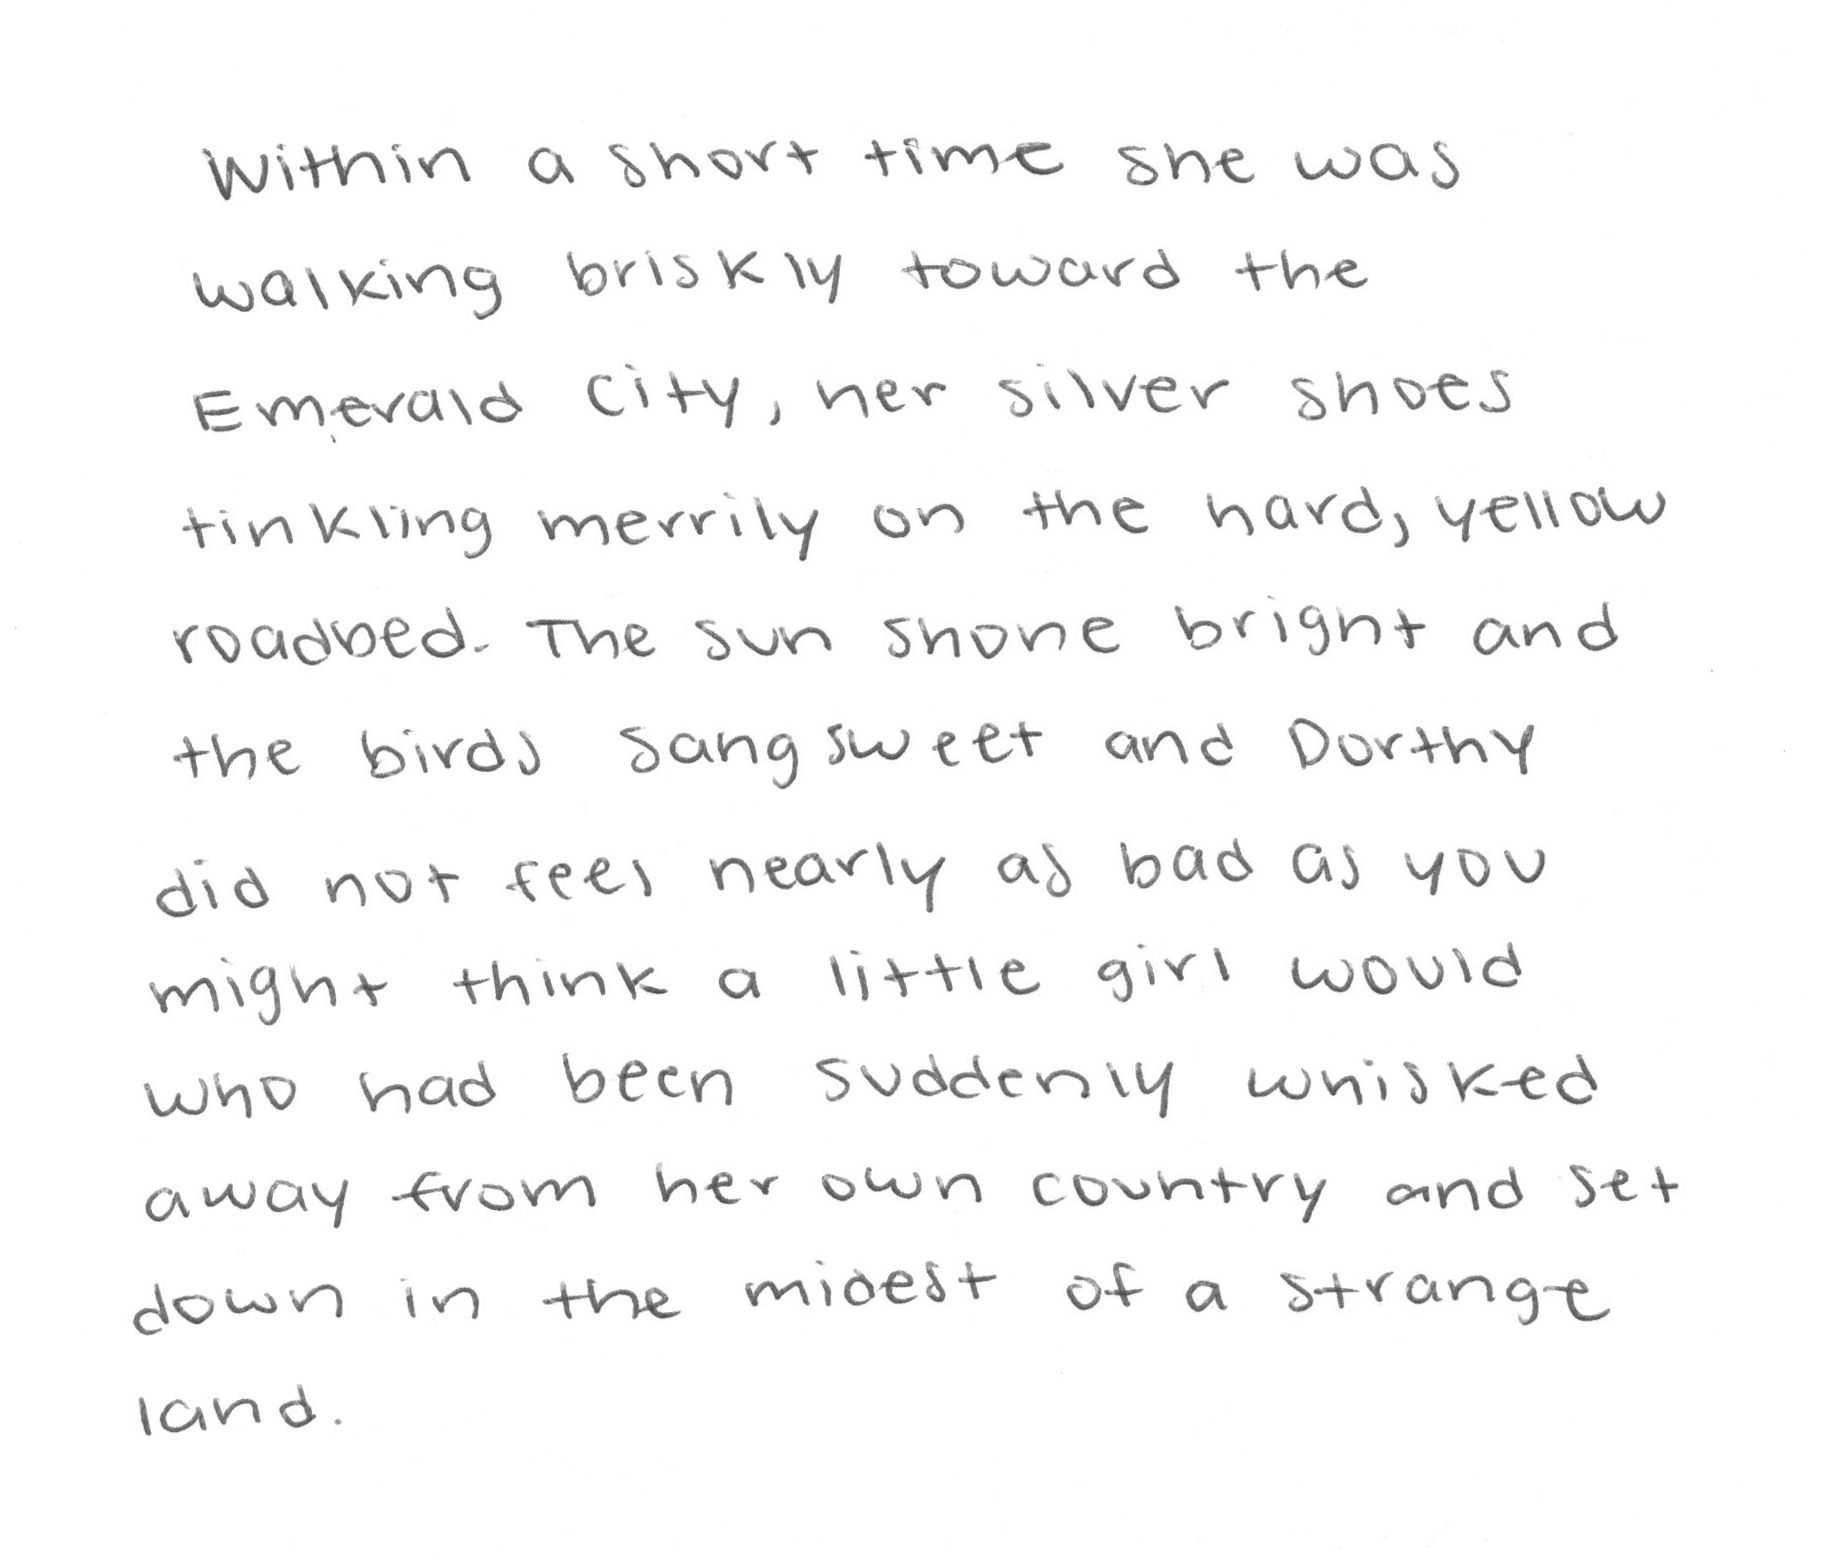 Within a short time she was
walking briskly toward the
Emerald City, her silver shoes
tinkling merrily on the hard, yellow
roadbed. The sun shone bright and
the birds sang sweet and Dorthy
did not feel nearly as bad as you
might think a little girl would
who had been suddenly whisked
away from her own country and set
down in the midest of a strange
land.